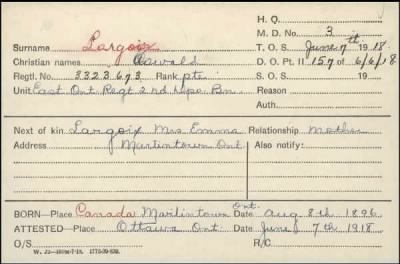 H. Q.
M. D. No. 3
Surname Largoix T. O. S. June 7th 1918.
Christian names Oswald D. O. Pt. II 157 of 6/6/18
Regtl. No. 3323673 Rank pte. S. O. S. 19
Unit East Ont Regt 2nd Depo Bn. Reason
Auth.
Next of kin Largoix Mrs Emma Relationship Mother
Address Martintown Ont Also notify:
BORN—Place Canada Martintown Ont. Date Aug 8th 1896
ATTESTED—Place Ottawa Ont. Date June 7th 1918
O/S R/C